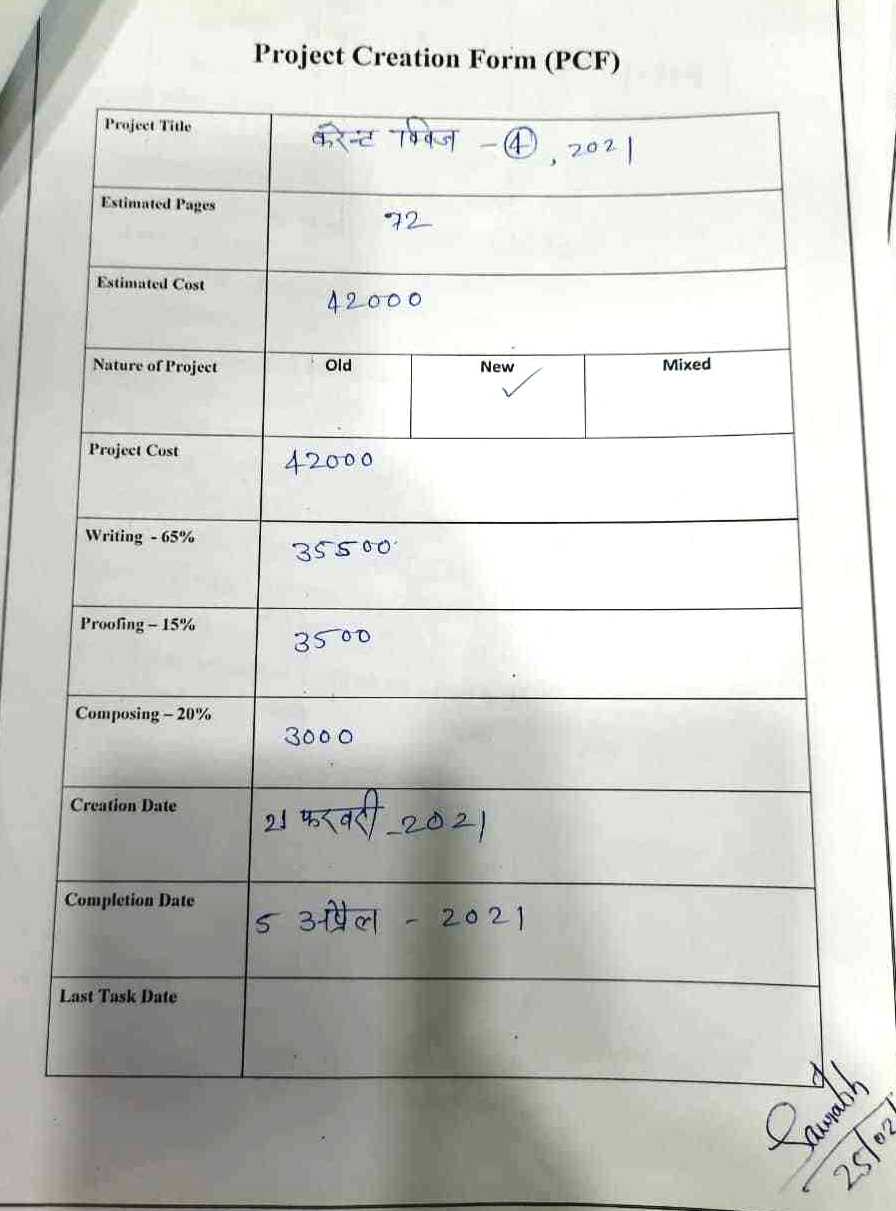 Project Creation Form (PCF)
Project Title करेन्ट क्विज - 4, 2021
Estimated Pages 72
Estimated Cost 42000
Nature of Project Old New ✓ Mixed
Project Cost 42000
Writing - 65% 35500
Proofing – 15% 3500
Composing – 20% 3000
Creation Date 21 फरवरी - 2021
Completion Date 5 अप्रैल - 2021
Last Task Date
Saurabh
25/02/